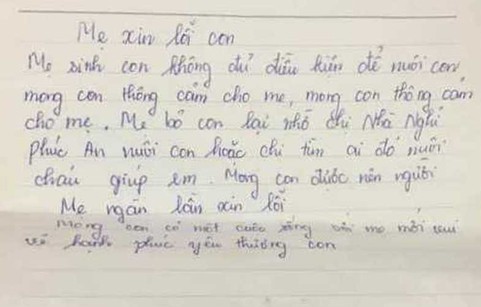 Mẹ xin lỗi con
Mẹ sinh con không đủ điều kiện để nuôi con
mong con thông cảm cho mẹ, mong con thông cảm
cho mẹ. Mẹ bỏ con lại nhờ chị Nhà Nghỉ
Phúc An nuôi con hoặc chị tìm ai đó nuôi
cháu giúp em. Mong con được nên người
Mẹ ngàn lần xin lỗi
Mong con có một cuộc sống với mẹ mới vui
vẻ hạnh phúc yêu thương con